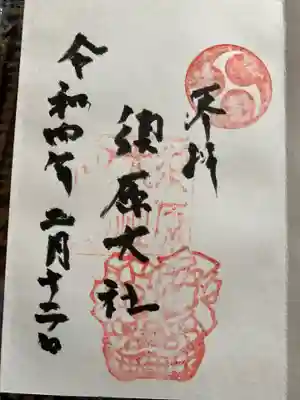 奉拝
須原大社
令和四年 二月十二日